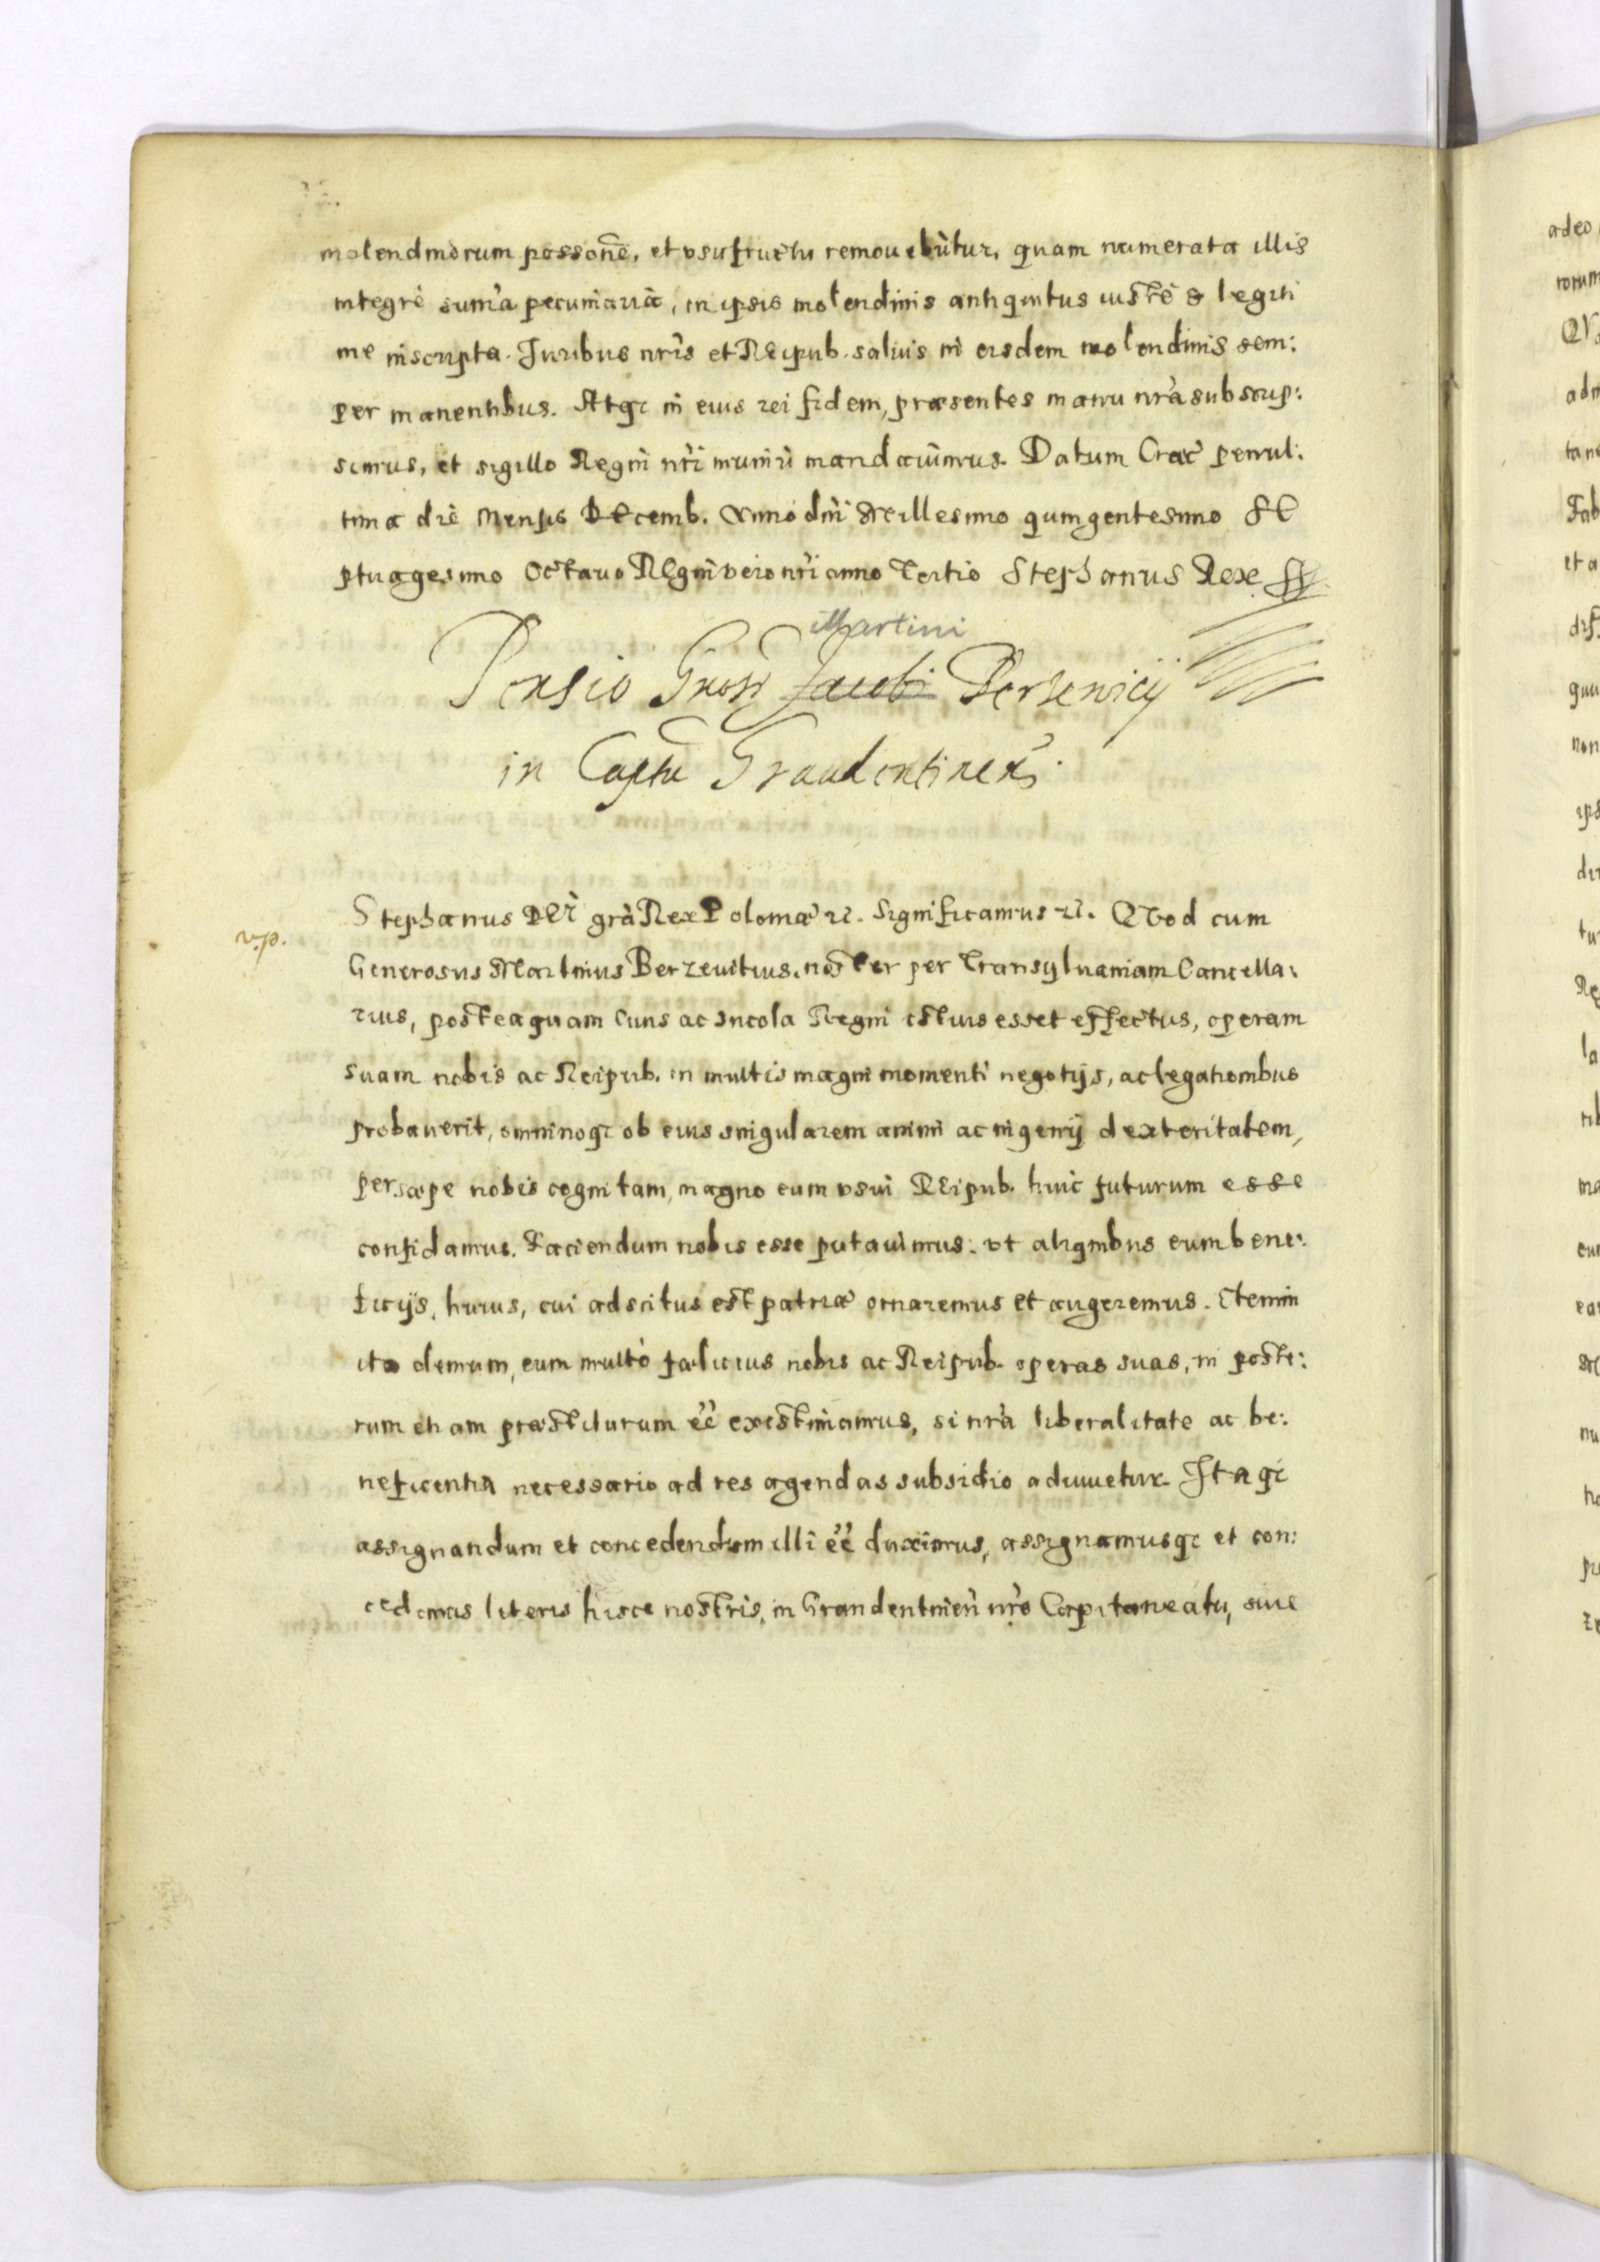 molendinorum possõne, et vsufructu remouebũtur, quam numerata illis
integrè sum̃a pecuniaria, in ipsis molendinis antiquitus iustè & legiti
me inscripta. Iuribus nr̃is et REipub. saluis in eisdem molendinis sem:
per manentibus. Atqȝ in eius rei fidem, præsentes manu nr̃a subscrip:
simus, et sigillo Regni nr̃i muniri mandauimus. Datum Crac̃ penul:
tima die Mensis DEcemb. Anno dñi Millesimo quingentesimo SE
ptuagesimo Octauo REgni vero nr̃i anno Tertio Stephanus Rex SS
Martini
Pensio Gnosi Jacobi Berzewicij
in Captũ Graudentineñ.
Stephanus DEI gr̃a Rex Poloniæ ꝛc. Significamus ꝛc. QVod cum
v.p.
Generosus Martinus Berzeuitius. noster per Transyluaniam Cancella:
rius, posteaquam Ciuis ac Incola Regni istius esset effectus, operam
suam nobis ac Reipub. in multis magni momenti negotijs, ac legationibus
probauerit, omninoqȝ ob eius singularem animi ac ingenij dexteritatem,
persæpe nobis cognitam, magno eum vsui REipub. huic futurum esse
confidamus. Faciendum nobis esse putauimus: vt aliquibus eum bene:
ficijs, huius, cui adscitus est patriæ ornaremus et augeremus. Etenim
ita demum, eum multò fælicius nobis ac Reipub. operas suas, in poste:
rum etiam præstiturum eẽ existimamus, si nr̃a liberalitate ac be:
neficentia necessario ad res agendas subsidio adiuuetur. Itaqȝ
assignandum et concedendum illi eẽ duximus, assignamusqȝ et con:
cedimus literis hisce nostris, in Graudentineñ nr̃o Capitaneatu, siue